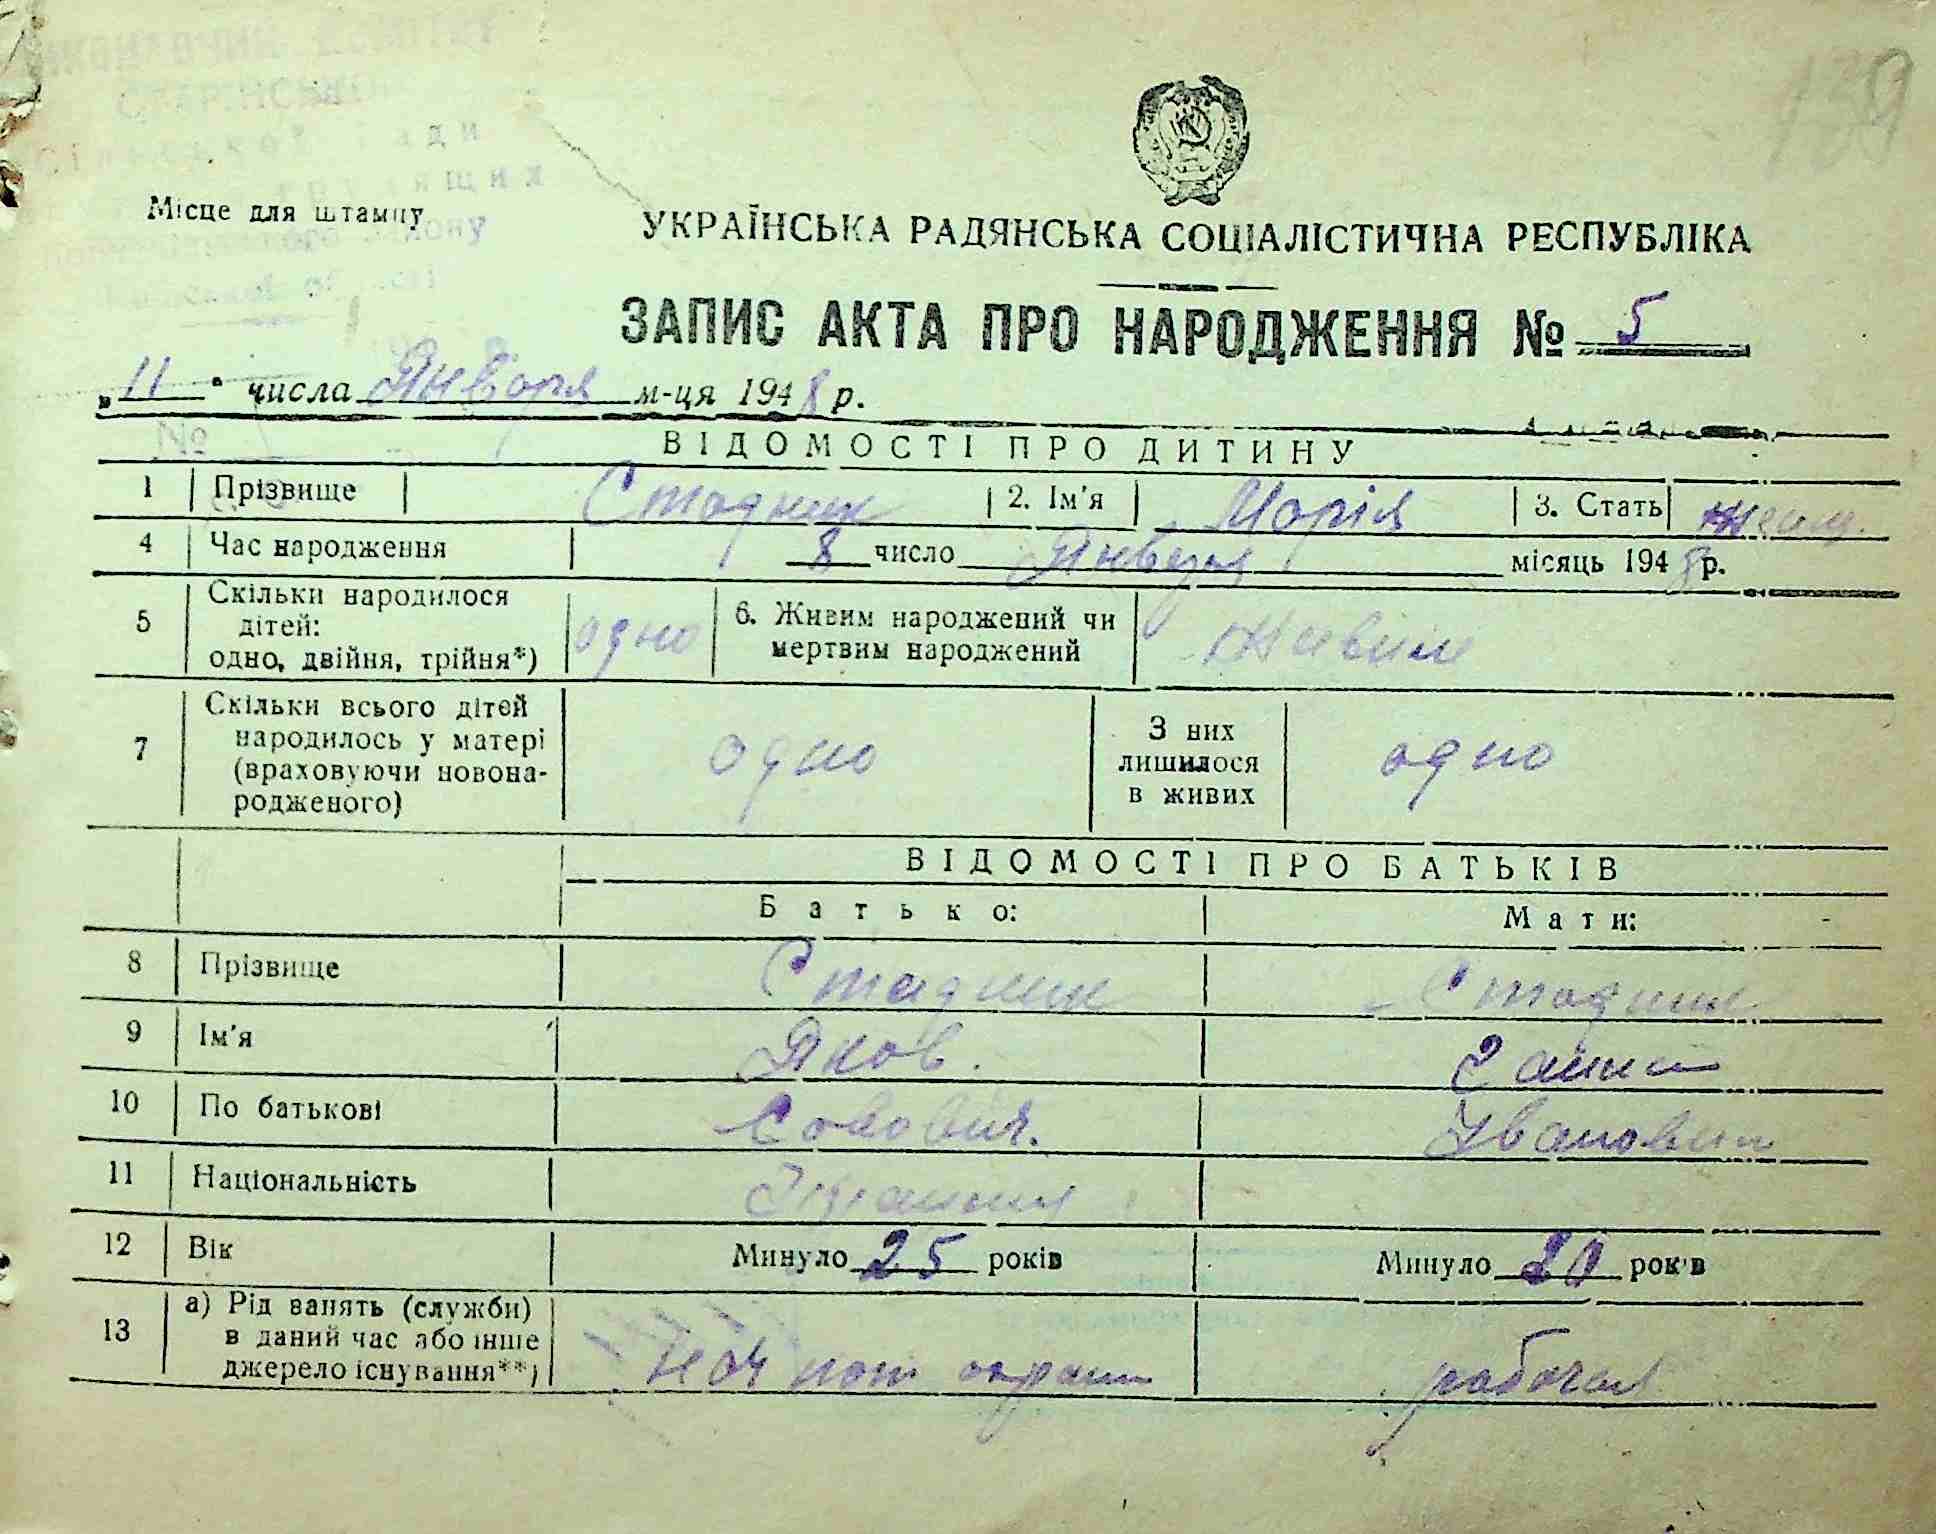 139
Місце для штампу
УКРАЇНСЬКА РАДЯНСЬКА СОЦІАЛІСТИЧНА РЕСПУБЛІКА
ЗАПИС АКТА ПРО НАРОДЖЕННЯ № 5
„11" числа Января м-ця 1948 р.
№
ВІДОМОСТІ ПРО ДИТИНУ
1 Прізвище Стадник 2. Ім'я Марія 3. Стать
4 Час народження 8 число Января місяць 1948 р.
5 Скільки народилося дітей: одно, двійня, трійня*) одно 6. Живим народжений чи мертвим народжений живим
7 Скільки всього дітей народилось у матері (враховуючи новонародженого) одно З них лишилося в живих одно
ВІДОМОСТІ ПРО БАТЬКІВ
Батько: Мати:
8 Прізвище Стадник Стадник
9 Ім'я Яков. Ганна
10 По батькові Івановна
11 Національність
12 Вік Минуло 25 років Минуло 20 років
13 а) Рід занять (служби) в даний час або інше джерело існування**) нач пот охран рабочая